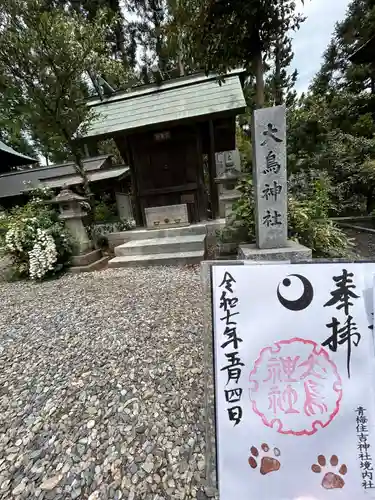 大鳥神社
奉拝
大鳥神社
令和七年五月四日
青梅住吉神社境内社